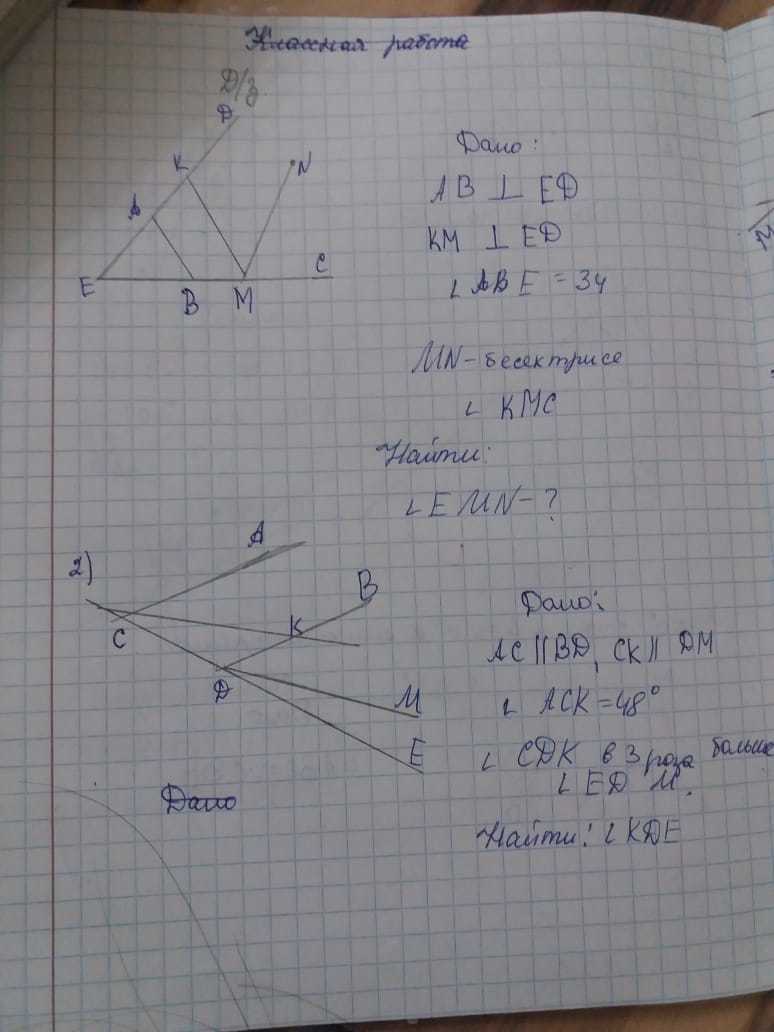 Классная работа
Д/з.
D
K
N
A
E
B
M
C
Дано:
AB ⊥ ED
KM ⊥ ED
∟ ABE = 34
MN - бесектрисе
∟ KMC
Найти:
∟ EMN - ?
2)
A
B
C
K
D
M
E
Дано:
AC || BD, CK || DM
∟ ACK = 48°
∟ CDK в 3 роза больше
∟ ED M.
Найти: ∟ KDE
Дано